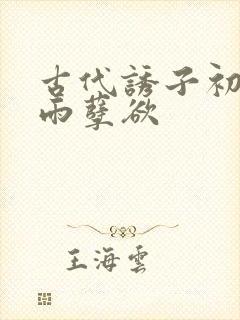 古代誘子初
雨孽欲
王海雲